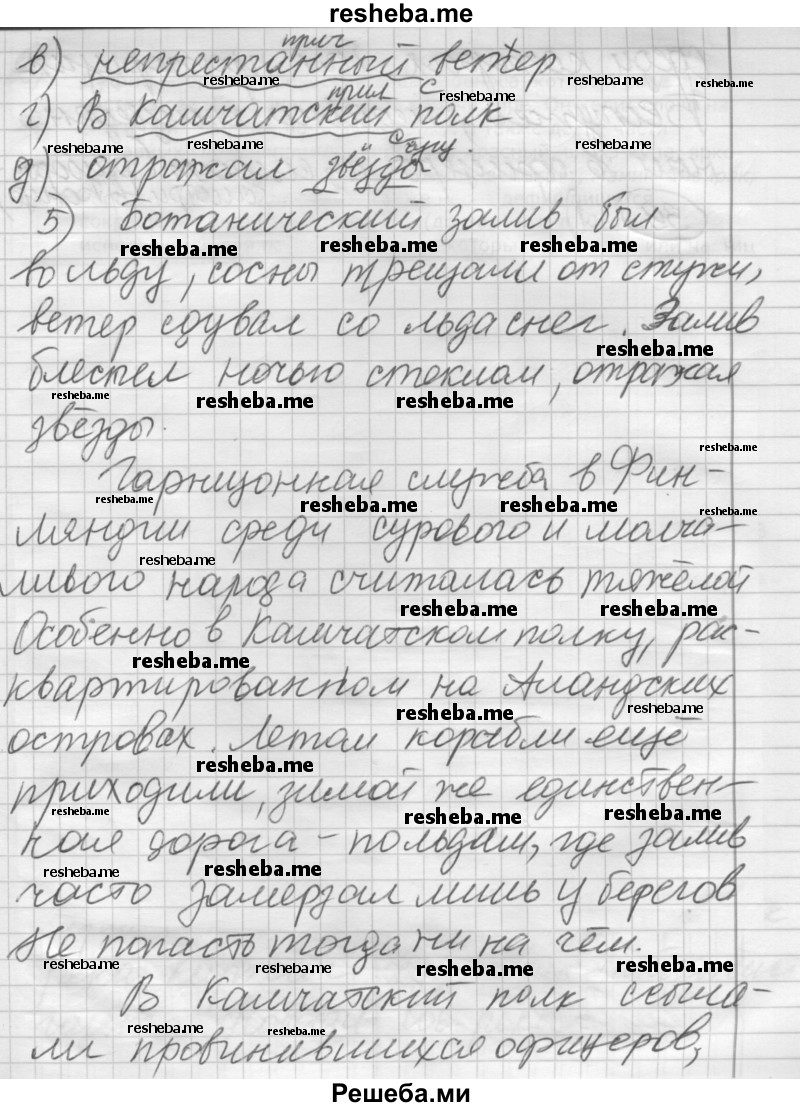 resheba.me
прич
в) непрестанный ветер
прил с
г) В Камчатский полк
сущ.
д) отражал звёзды
5) Ботанический залив был
во льду, сосны трещали от стужи,
ветер сдувал со льда снег. Залив
блестел ночью стеклом, отражая
звёзды.
Гарнизонная служба в Фин-
ляндии среди сурового и молча-
ливого народа считалась тяжёлой
Особенно в Камчатском полку, рас-
квартированном на Аландских
островах. Летом корабли ещё
приходили, зимой же единствен-
ная дорога – по льдам, где залив
часто замерзал лишь у берегов
Не попасть тогда ни на чём.
В Камчатский полк ссыла-
ли провинившихся офицеров,
Решеба.ми